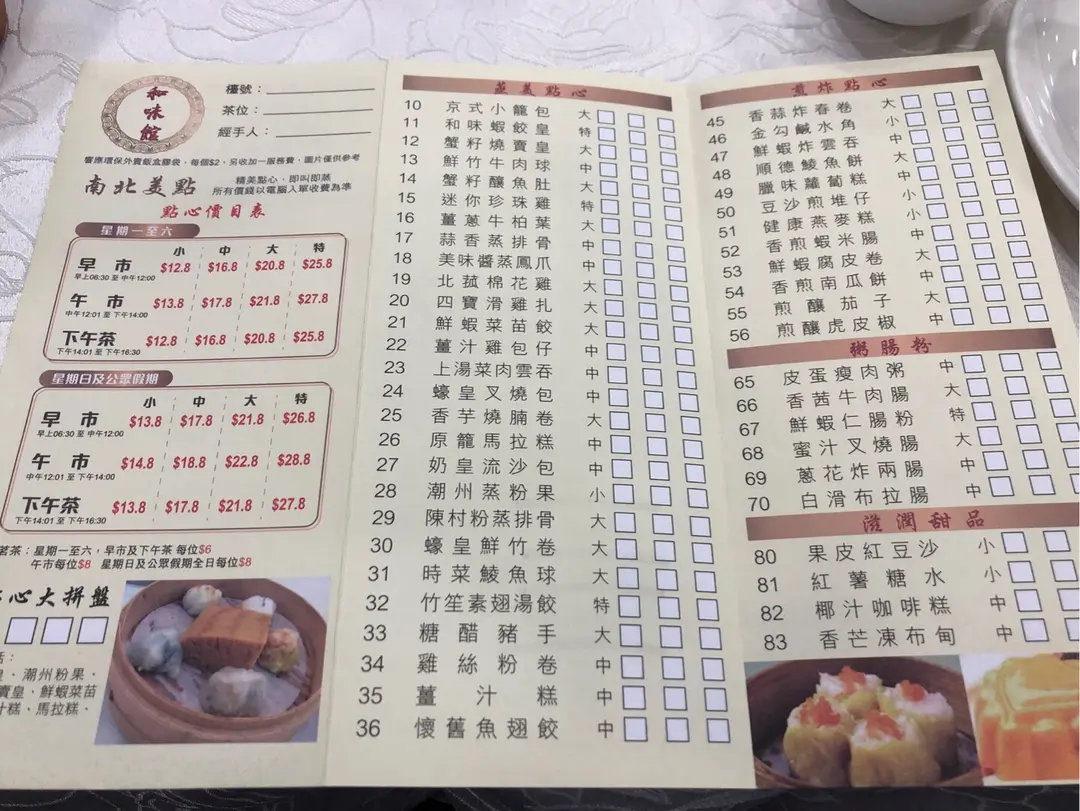 和味館
檯號：
茶位：
經手人：
響應環保外賣飯盒膠袋，每個$2，另收加一服務費，圖片僅供參考
南北美點
精美點心、即叫即蒸
所有價錢以電腦入單收費為準
點心價目表
星期一至六
小 中 大 特
早市 $12.8 $16.8 $20.8 $25.8
早上06:30 至 中午12:00
午市 $13.8 $17.8 $21.8 $27.8
中午12:01 至 下午14:00
下午茶 $12.8 $16.8 $20.8 $25.8
下午14:01 至 下午16:30
星期日及公眾假期
小 中 大 特
早市 $13.8 $17.8 $21.8 $26.8
早上06:30 至 中午12:00
午市 $14.8 $18.8 $22.8 $28.8
中午12:01 至 下午14:00
下午茶 $13.8 $17.8 $21.8 $27.8
下午14:01 至 下午16:30
茗茶：星期一至六，早市及下午茶 每位$6
午市每位$8 星期日及公眾假期全日每位$8
心大拼盤
潮州粉果、
賣皇、鮮蝦菜苗
汁糕、馬拉糕、
蒸美點心
10 京式小籠包 大
11 和味蝦餃皇 特
12 蟹籽燒賣皇 大
13 鮮竹牛肉球 大
14 蟹籽釀魚肚 大
15 迷你珍珠雞 特
16 薑蔥牛柏葉 大
17 蒜香蒸排骨 大
18 美味醬蒸鳳爪 大
19 北菰棉花雞 大
20 四寶滑雞扎 大
21 鮮蝦菜苗餃 大
22 薑汁雞包仔 中
23 上湯菜肉雲吞 中
24 蠔皇叉燒包 中
25 香芋燒腩卷 大
26 原籠馬拉糕 中
27 奶皇流沙包 中
28 潮州蒸粉果 小
29 陳村粉蒸排骨 大
30 蠔皇鮮竹卷 大
31 時菜鯪魚球 大
32 竹笙素翅湯餃 特
33 糖醋豬手 大
34 雞絲粉卷 中
35 薑汁糕 中
36 懷舊魚翅餃 中
煎炸點心
45 香蒜炸春卷 大
46 金勾鹹水角 小
47 鮮蝦炸雲吞 中
48 順德鯪魚餅 大
49 臘味蘿蔔糕 中
50 豆沙煎堆仔 小
51 健康燕麥糕 小
52 香煎蝦米腸 中
53 鮮蝦腐皮卷 大
54 香煎南瓜餅 中
55 煎釀茄子 大
56 煎釀虎皮椒 中
粥腸粉
65 皮蛋瘦肉粥 中
66 香茜牛肉腸 大
67 鮮蝦仁腸粉 特
68 蜜汁叉燒腸 大
69 蔥花炸兩腸 中
70 白滑布拉腸 中
滋潤甜品
80 果皮紅豆沙 小
81 紅薯糖水 小
82 椰汁咖啡糕 中
83 香芒凍布甸 中